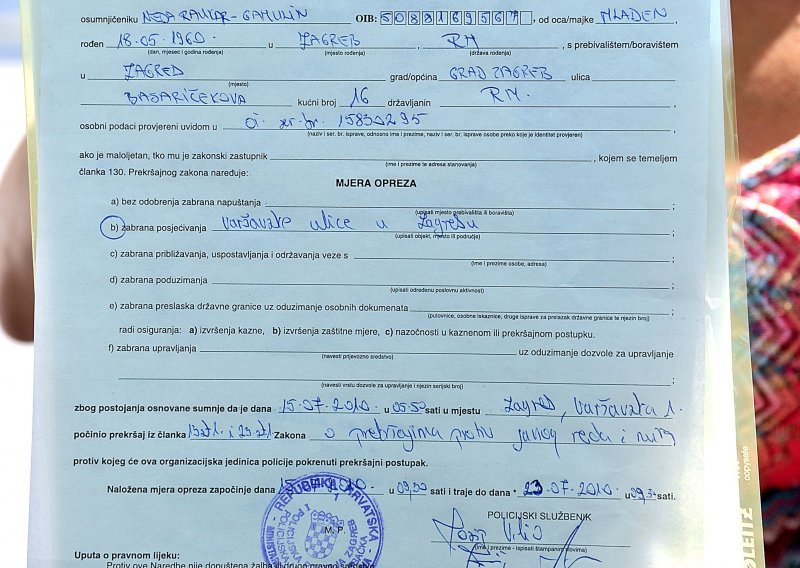 osumnjičeniku NEDA RAUKAR-GAMULIN OIB: 50881695671, od oca/majke MLADEN
rođen 18.05.1960. u ZAGREB, RH, s prebivalištem/boravištem
(dan, mjesec i godina rođenja) (mjesto rođenja) (država rođenja)
u ZAGREB grad/općina GRAD ZAGREB ulica
(mjesto)
BASARIČEKOVA kućni broj 16 državljanin RH. ,
osobni podaci provjereni uvidom u oi. ser. br. 15830295 ,
(naziv i ser. br. isprave, odnosno ime i prezime, naziv i ser. br. isprave osobe preko koje je identitet provjeren)
ako je maloljetan, tko mu je zakonski zastupnik , kojem se temeljem
(ime i prezime te adresa stanovanja)
članka 130. Prekršajnog zakona naređuje:
MJERA OPREZA
a) bez odobrenja zabrana napuštanja ;
(upisati mjesto prebivališta ili boravišta)
b) zabrana posjećivanja Varšavske ulice u Zagrebu ;
(upisati objekt, mjesto ili područje)
c) zabrana približavanja, uspostavljanja i održavanja veze s ;
(ime i prezime osobe, adresa)
d) zabrana poduzimanja ;
(upisati određenu poslovnu aktivnost)
e) zabrana preslaska državne granice uz oduzimanje osobnih dokumenata
(putovnice, osobne iskaznice, druge isprave za prelazak državne granice te njezin broj)
radi osiguranja: a) izvršenja kazne, b) izvršenja zaštitne mjere, c) nazočnosti u kaznenom ili prekršajnom postupku.
f) zabrana upravljanja uz oduzimanje dozvole za upravljanje
(navesti prijevozno sredstvo)
;
(navesti vrstu dozvole za upravljanje i njezin serijski broj)
zbog postojanja osnovane sumnje da je dana 15.07.2010. u 05:50 sati u mjestu Zagreb, Varšavska 1.
počinio prekršaj iz članka 13 st. 1. i 23 st. 1 Zakona o prekršajima protiv javnog reda i mira
protiv kojeg će ova organizacijska jedinica policije pokrenuti prekršajni postupak.
Naložena mjera opreza započinje dana 15.07.2010. u 09,30 sati i traje do dana * 23.07.2010. u 09,30 sati.
REPUBLIKA HRVATSKA
M. P.
POLICIJSKI SLUŽBENIK
(ime i prezime - ispisati štampanim slovima)
Uputa o pravnom lijeku:
Protiv ove Naredbe nije dopuštena žalba ili drugo pravno sredstvo
copysafe
LEITZ